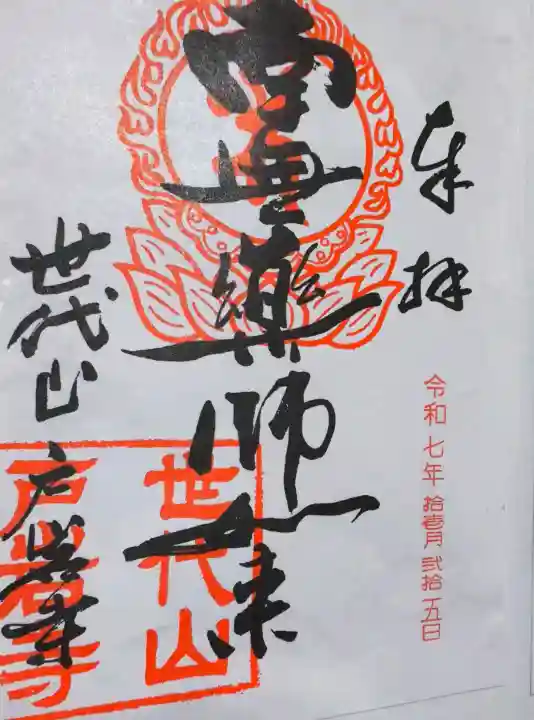 奉拝
令和七年拾壱月弐拾五日
南無薬師如来
世代山
戸岩寺
世代山戸岩寺